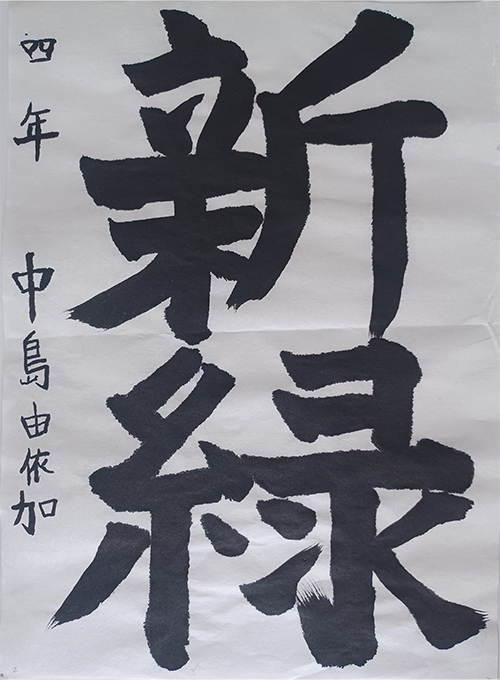 新緑
四年 中島由依加